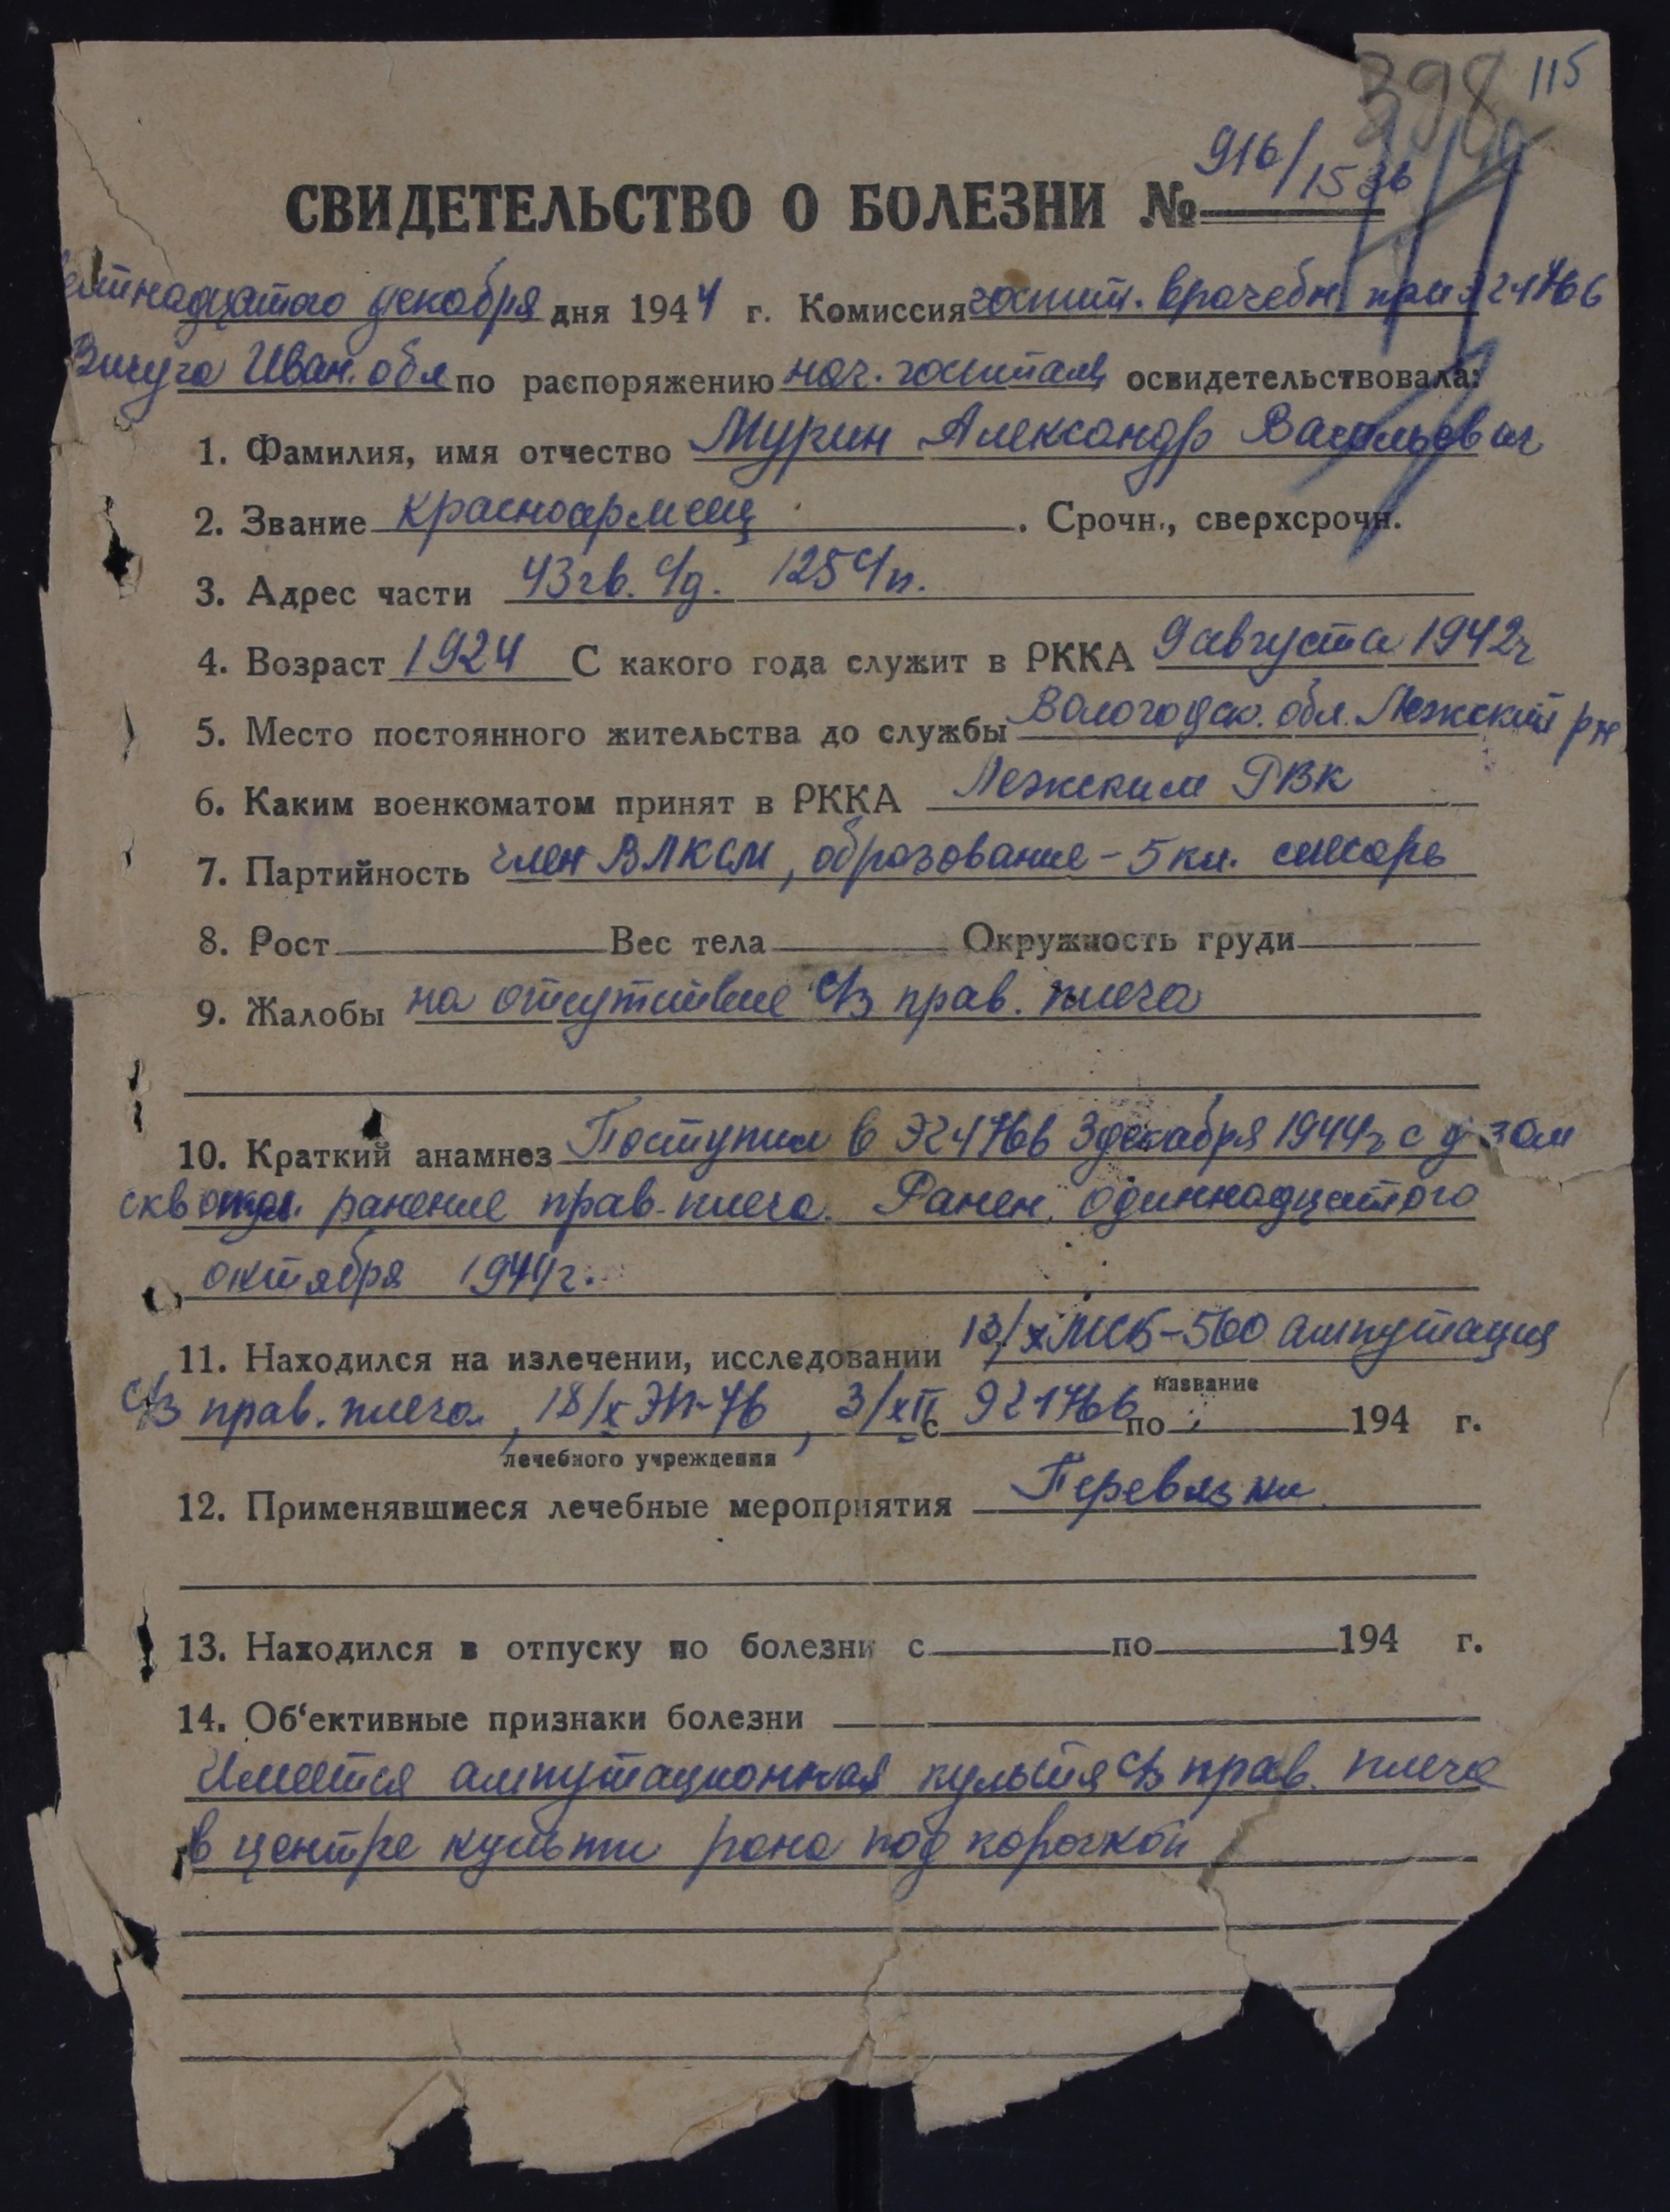 398 115
916/1536
СВИДЕТЕЛЬСТВО О БОЛЕЗНИ №
декабря дня 1944 г. Комиссия госпит. врачебн. при
Вичуга Иван. обл по распоряжению нач. госпиталя освидетельствовала:
1. Фамилия, имя отчество Мурин Александр Васильевич
2. Звание красноармеец . Срочн., сверхсрочн.
3. Адрес части 43 гв. с/д. 125 с/п.
4. Возраст 1924 С какого года служит в РККА 9 августа 1942г
5. Место постоянного жительства до службы Вологодск. обл. Лежский рн
6. Каким военкоматом принят в РККА Лежским РВК
7. Партийность член ВЛКСМ, образование – 5 кл. слесарь
8. Рост Вес тела Окружность груди
9. Жалобы на отсутствие с/з прав. плеча
10. Краткий анамнез Поступил в ЭГ 1766 3 декабря 1944г с д-зом
скв ранение прав. плеча. Ранен одиннадцатого
октября 1944г.
11. Находился на излечении, исследовании 13/X МСБ–560 ампутация
название
с/з прав. плеча, 18/X ЭП–76, 3/XII с ЭГ 1766 по 194 г.
лечебного учреждения
12. Применявшиеся лечебные мероприятия Перевязки
13. Находился в отпуску по болезни с по 194 г.
14. Об'ективные признаки болезни
Имеется ампутационная культя с/з прав. плеча
в центре культи рана под корочкой